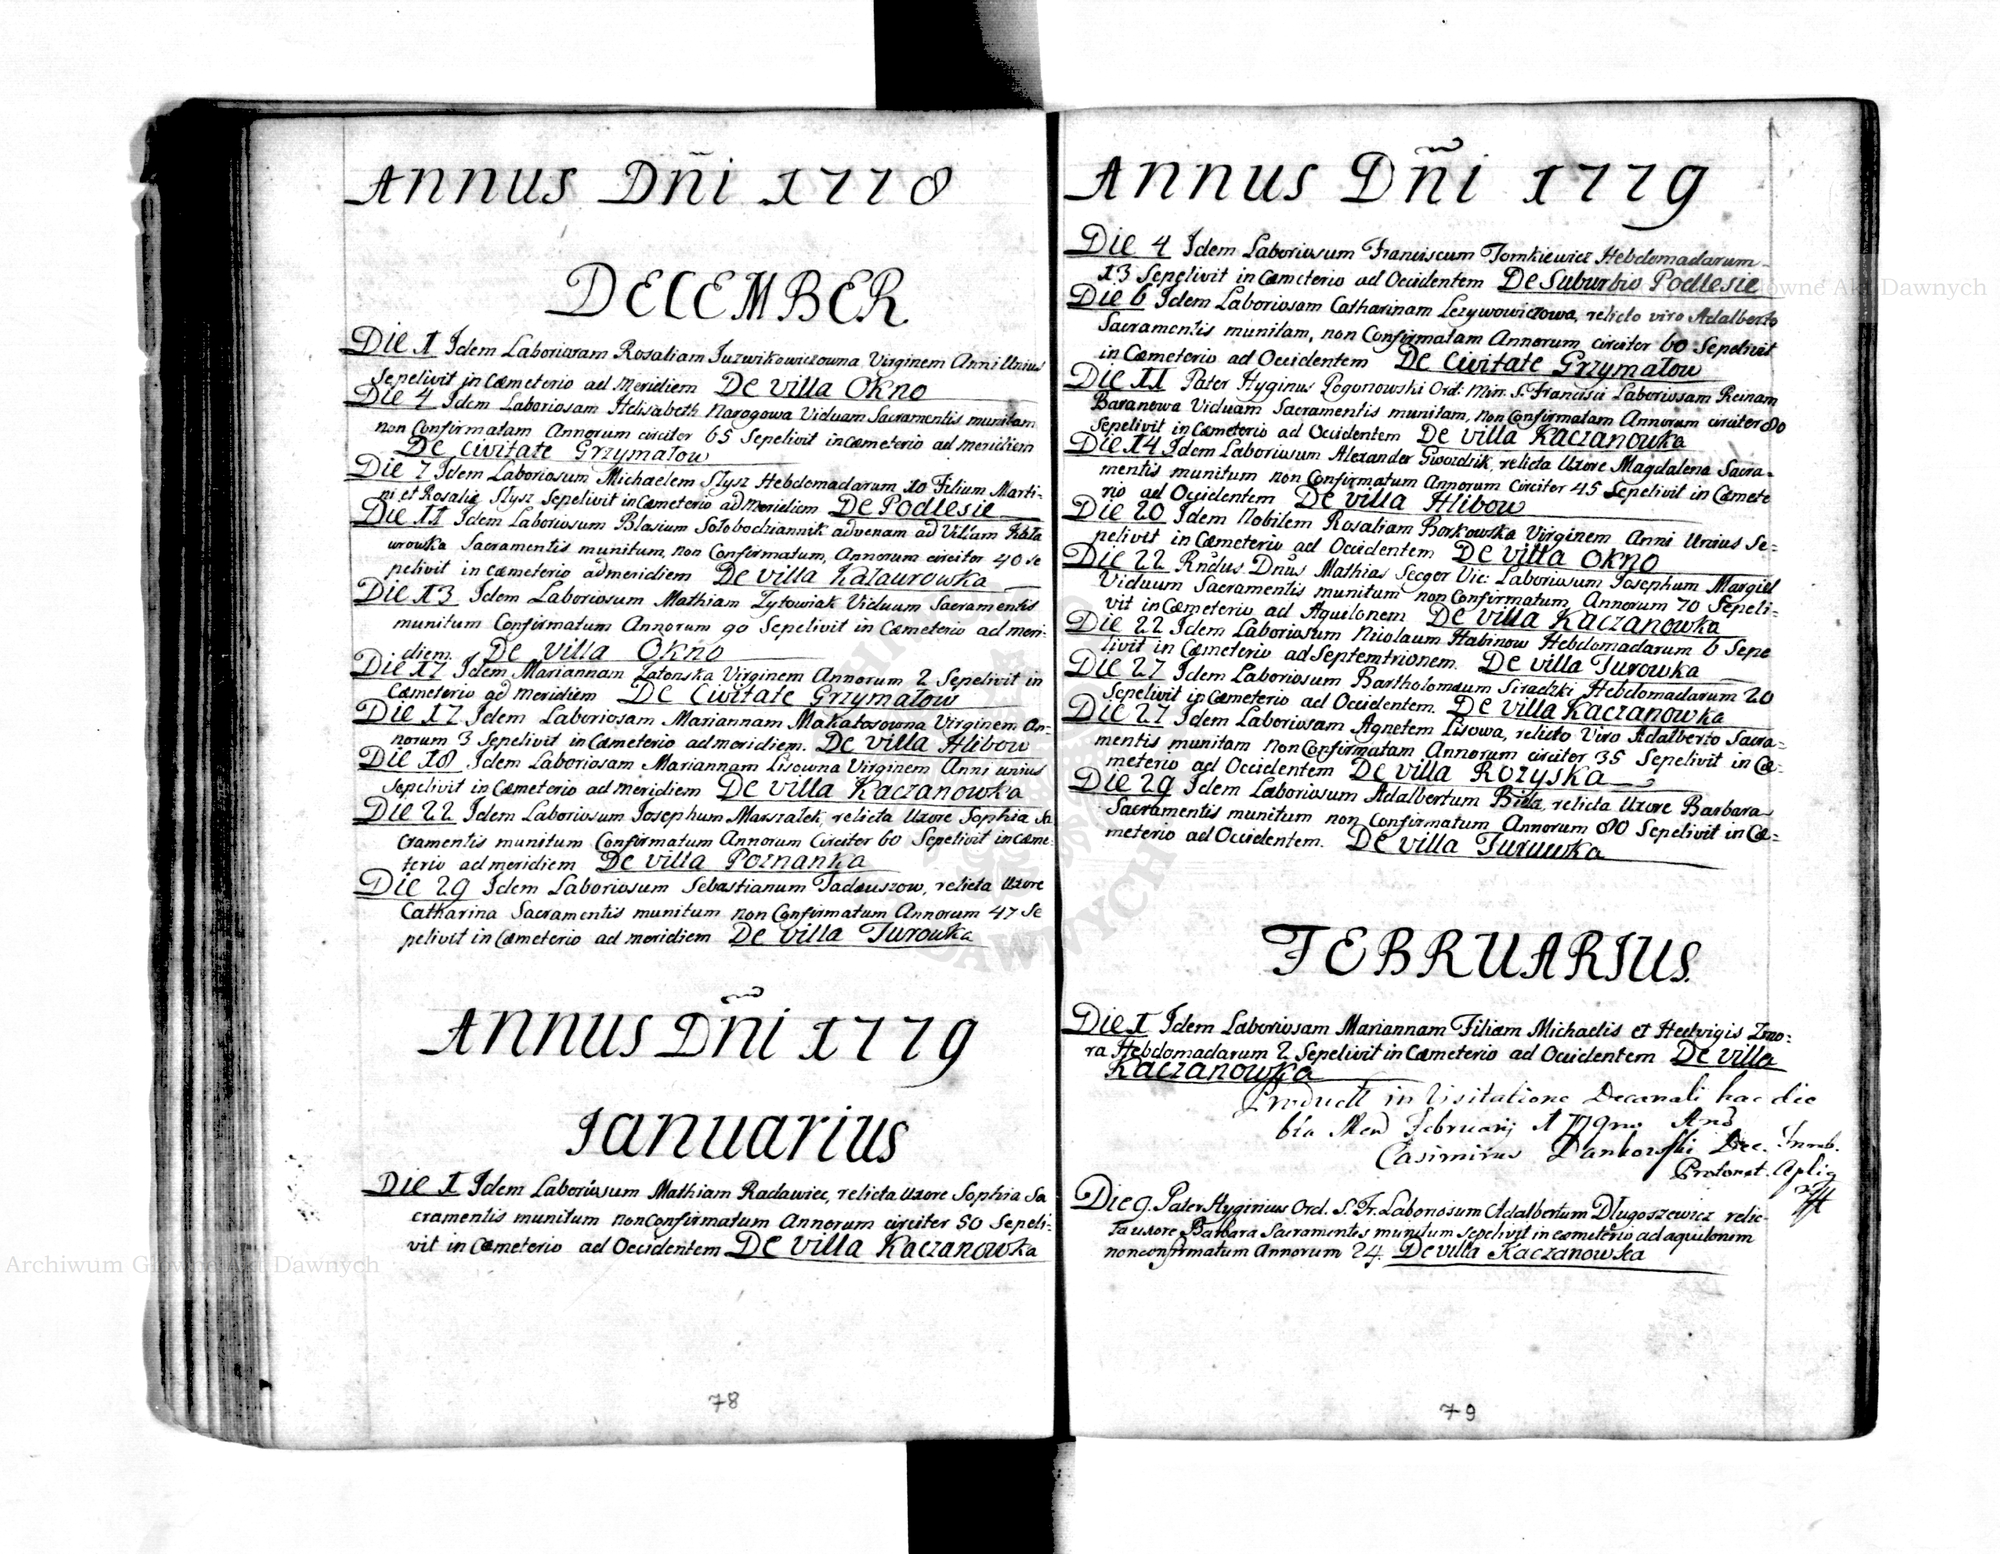 Annus Dñi 1778
DECEMBER
Die 1 Idem Laboriosam Rosaliam Juzwikowiczowna Virginem Anni Unius
Sepelivit in Cæmeterio ad Meridiem De villa Okno
Die 4 Idem Laboriosam Helisabeth Narogowa Viduam Sacramentis munitam
non Confirmatam Annorum circiter 65 Sepelivit in cæmeterio ad meridiem
De Civitate Grzymałow
Die 7 Idem Laboriosum Michaelem Slysz Hebdomadarum 10 Filium Marti-
ni et Rosaliæ Slysz Sepelivit in Cæmeterio ad Meridiem De Podlesie
Die 11 Idem Laboriosum Blasium Słobodziannik advenam ad Villam Kała
urowka Sacramentis munitum, non Confirmatum, Annorum circiter 40 Se
pelivit in cæmeterio ad meridiem De villa Kałaurowka
Die 13 Idem Laboriosum Mathiam Zytowiak Viduum Sacramentis
munitum Confirmatum Annorum 90 Sepelivit in Cæmeterio ad meri-
diem. De villa Okno
Die 17 Idem Mariannam Zatonska Virginem Annorum 2 Sepelivit in
Cæmeterio ad meridiem De Civitate Grzymałow
Die 17 Idem Laboriosam Mariannam Makatosowna Virginem An-
norum 3 Sepelivit in Cæmeterio ad meridiem. De villa Hlibow
Die 18 Idem Laboriosam Mariannam Lisowna Virginem Anni unius
Sepelivit in Cæmeterio ad meridiem De villa Kaczanowka
Die 22 Idem Laboriosum Josephum Marszałek, relicta Uxore Sophia Sa
cramentis munitum Confirmatum Annorum Circiter 60 Sepelivit in Cæme-
terio ad meridiem De villa Poznanka
Die 29 Idem Laboriosum Sebastianum Tadeuszow, relicta Uxore
Catharina Sacramentis munitum non Confirmatum Annorum 47 Se
pelivit in Cæmeterio ad meridiem De villa Turowka
Annus Dñi 1779
Januarius
Die 1 Idem Laboriosum Mathiam Radawiec, relicta Uxore Sophia Sa
cramentis munitum non Confirmatum Annorum circiter 50 Sepeli-
vit in Cæmeterio ad Occidentem De villa Kaczanowka
78
Annus Dñi 1779
Die 4 Idem Laboriosum Franciscum Tomkiewicz Hebdomadarum
13 Sepelivit in Cæmeterio ad Occidentem De Suburbio Podlesie
Die 6 Idem Laboriosam Catharinam Lezywowiczowa, relicto viro Adalberto
Sacramentis munitam, non Confirmatam Annorum circiter 60 Sepelivit
in Cæmeterio ad Occidentem De Civitate Grzymałow
Die 11 Pater Hyginus Rogonowski Ord: Min: S. Francisci Laboriosam Reinam
Baranowa Viduam Sacramentis munitam, non Confirmatam Annorum circiter 80
Sepelivit in Cæmeterio ad Occidentem De villa Kaczanowka
Die 14 Idem Laboriosum Alexander Gwozdzik, relicta Uxore Magdalena Sacra-
mentis munitum non Confirmatum Annorum Circiter 45 Sepelivit in Cæmete
rio ad Occidentem De villa Hlibow
Die 20 Idem Nobilem Rosaliam Borkowska Virginem Anni Unius Se=
pelivit in Cæmeterio ad Occidentem De villa Okno
Die 22 Rñdus Dñus Mathias Seeger Vic: Laboriosum Josephum Margiel
Viduum Sacramentis munitum non Confirmatum Annorum 70 Sepeli-
vit in Cæmeterio ad Aquilonem De villa Kaczanowka
Die 22 Idem Laboriosum Nicolaum Habinow Hebdomadarum 6 Sepe
livit in Cæmeterio ad Septemtrionem. De villa Turowka
Die 27 Idem Laboriosum Bartholomæum Siradzki Hebdomadarum 20
Sepelivit in Cæmeterio ad Occidentem. De villa Kaczanowka
Die 27 Idem Laboriosam Agnetem Lisowa, relicto Viro Adalberto Sacra=
mentis munitam non Confirmatam Annorum circiter 35 Sepelivit in Cæ-
meterio ad Occidentem De villa Rozyska
Die 29 Idem Laboriosum Adalbertum Bida, relicta Uxore Barbara
Sacramentis munitum non Confirmatum Annorum 80 Sepelivit in Cæ=
meterio ad Occidentem. De villa Turowka
FEBRUARIUS.
Die 1 Idem Laboriosam Mariannam Filiam Michaelis et Hedvigis Zmo-
ra Hebdomadarum 2 Sepelivit in Cæmeterio ad Occidentem De villa
Kaczanowka
Product in Visitatione Decanali hac die
6ta Mens Februarij 1779no And
Casimirus Dankowski Dec. Tremb.
Protonot. Aplig
Die 9. Pater Hyginius Ord. S. Fr. Laboriosum Adalbertum Długoszewicz relic-
ta uxore Barbara Sacramentis munitum sepelivit in cæmeterio ad aquilonem
nonconfirmatum Annorum 24. De villa Kaczanowka
79
Archiwum Główne Akt Dawnych